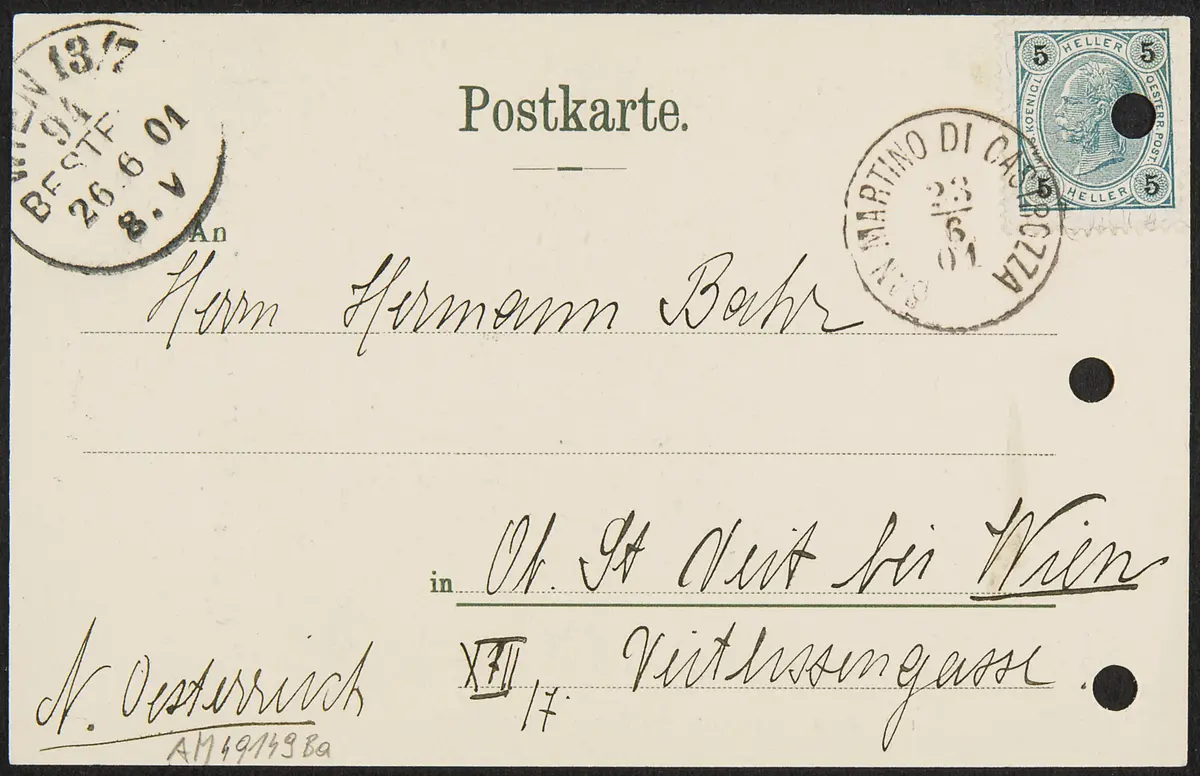 WIEN 13/7
94
BESTE
26.6 01
8.V
Postkarte.
5 HELLER 5
OESTERR. POST.
5 HELLER 5
SAN MARTINO DI CASTROZZA
23
6
01
An
Herrn Hermann Bahr
in Ob. St Veit bei Wien
/7. Veitlissengasse.
N. Oesterreich
AM49149Ba